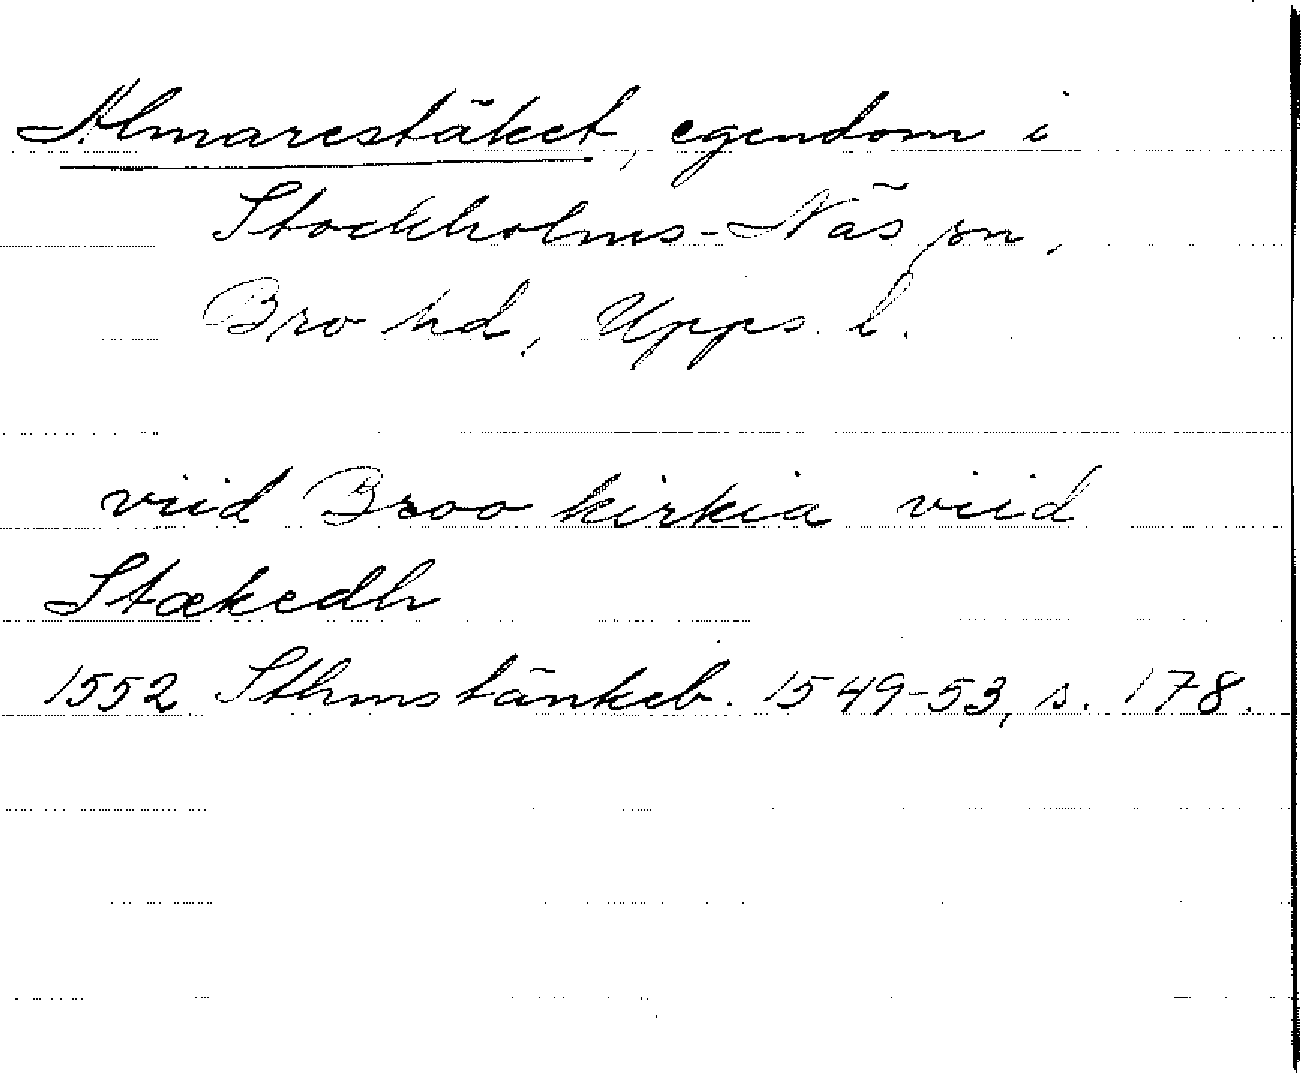 Almarestäket, egendom i
Stockholms-Näs sn,
Bro hd, Upps. l.
viid Broo kirkia viid
Stækedh
1552 Sthms tänkeb. 1549-53, s. 178.